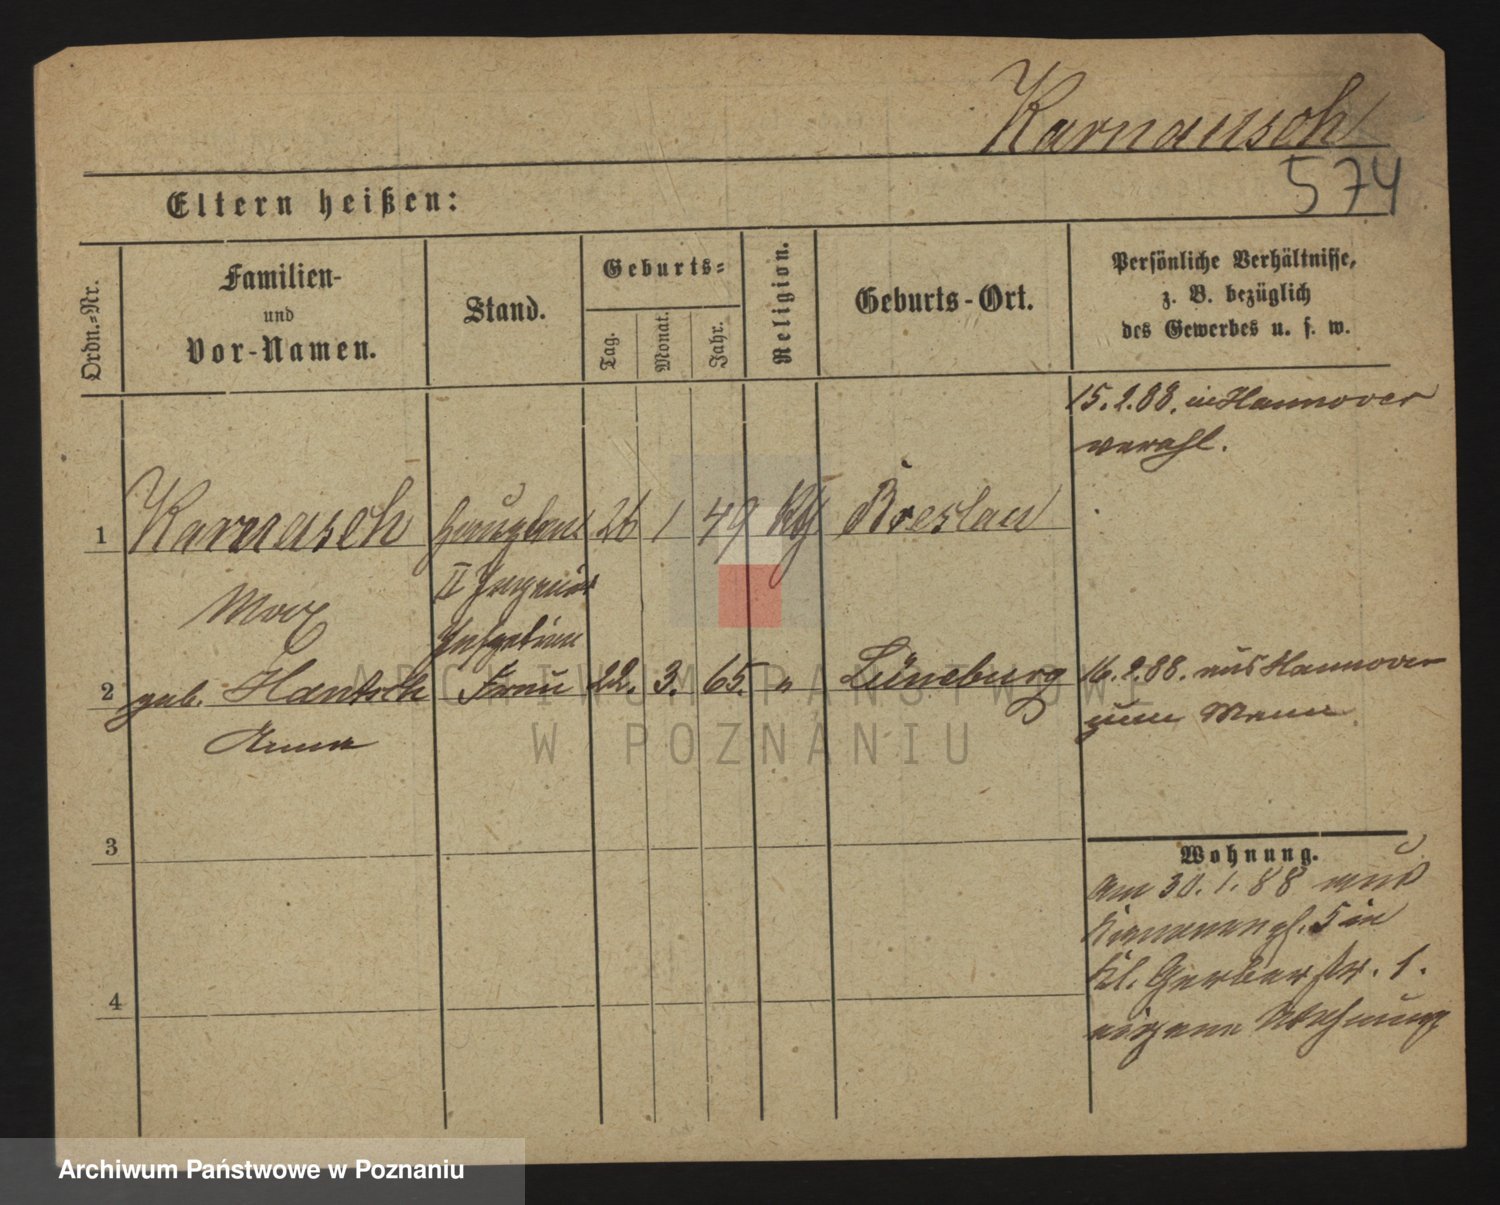 Karnausch
574
Eltern heißen:
Ordn.-Nr.
Familien-
und
Vor-Namen.
Stand.
Geburts-
Tag.
Monat.
Jahr.
Religion.
Geburts-Ort.
Persönliche Verhältnisse,
z. B. bezüglich
des Gewerbes u. s. w.
15.2.88. in Hannover
verehl.
1 Karnasch 26 1 49 Breslau
Max II Ingenieur
Inspection
2 geb. Hantsch Frau 22. 3. 65. " Lüneburg 16.2.88. aus Hannover
Anna zum Mann
3
Wohnung.
am 30.1.88 aus
5 in
Kl. Gerberstr. 1.
eigene Wohnung
4
ARCHIWUM PAŃSTWOWE
W POZNANIU
Archiwum Państwowe w Poznaniu